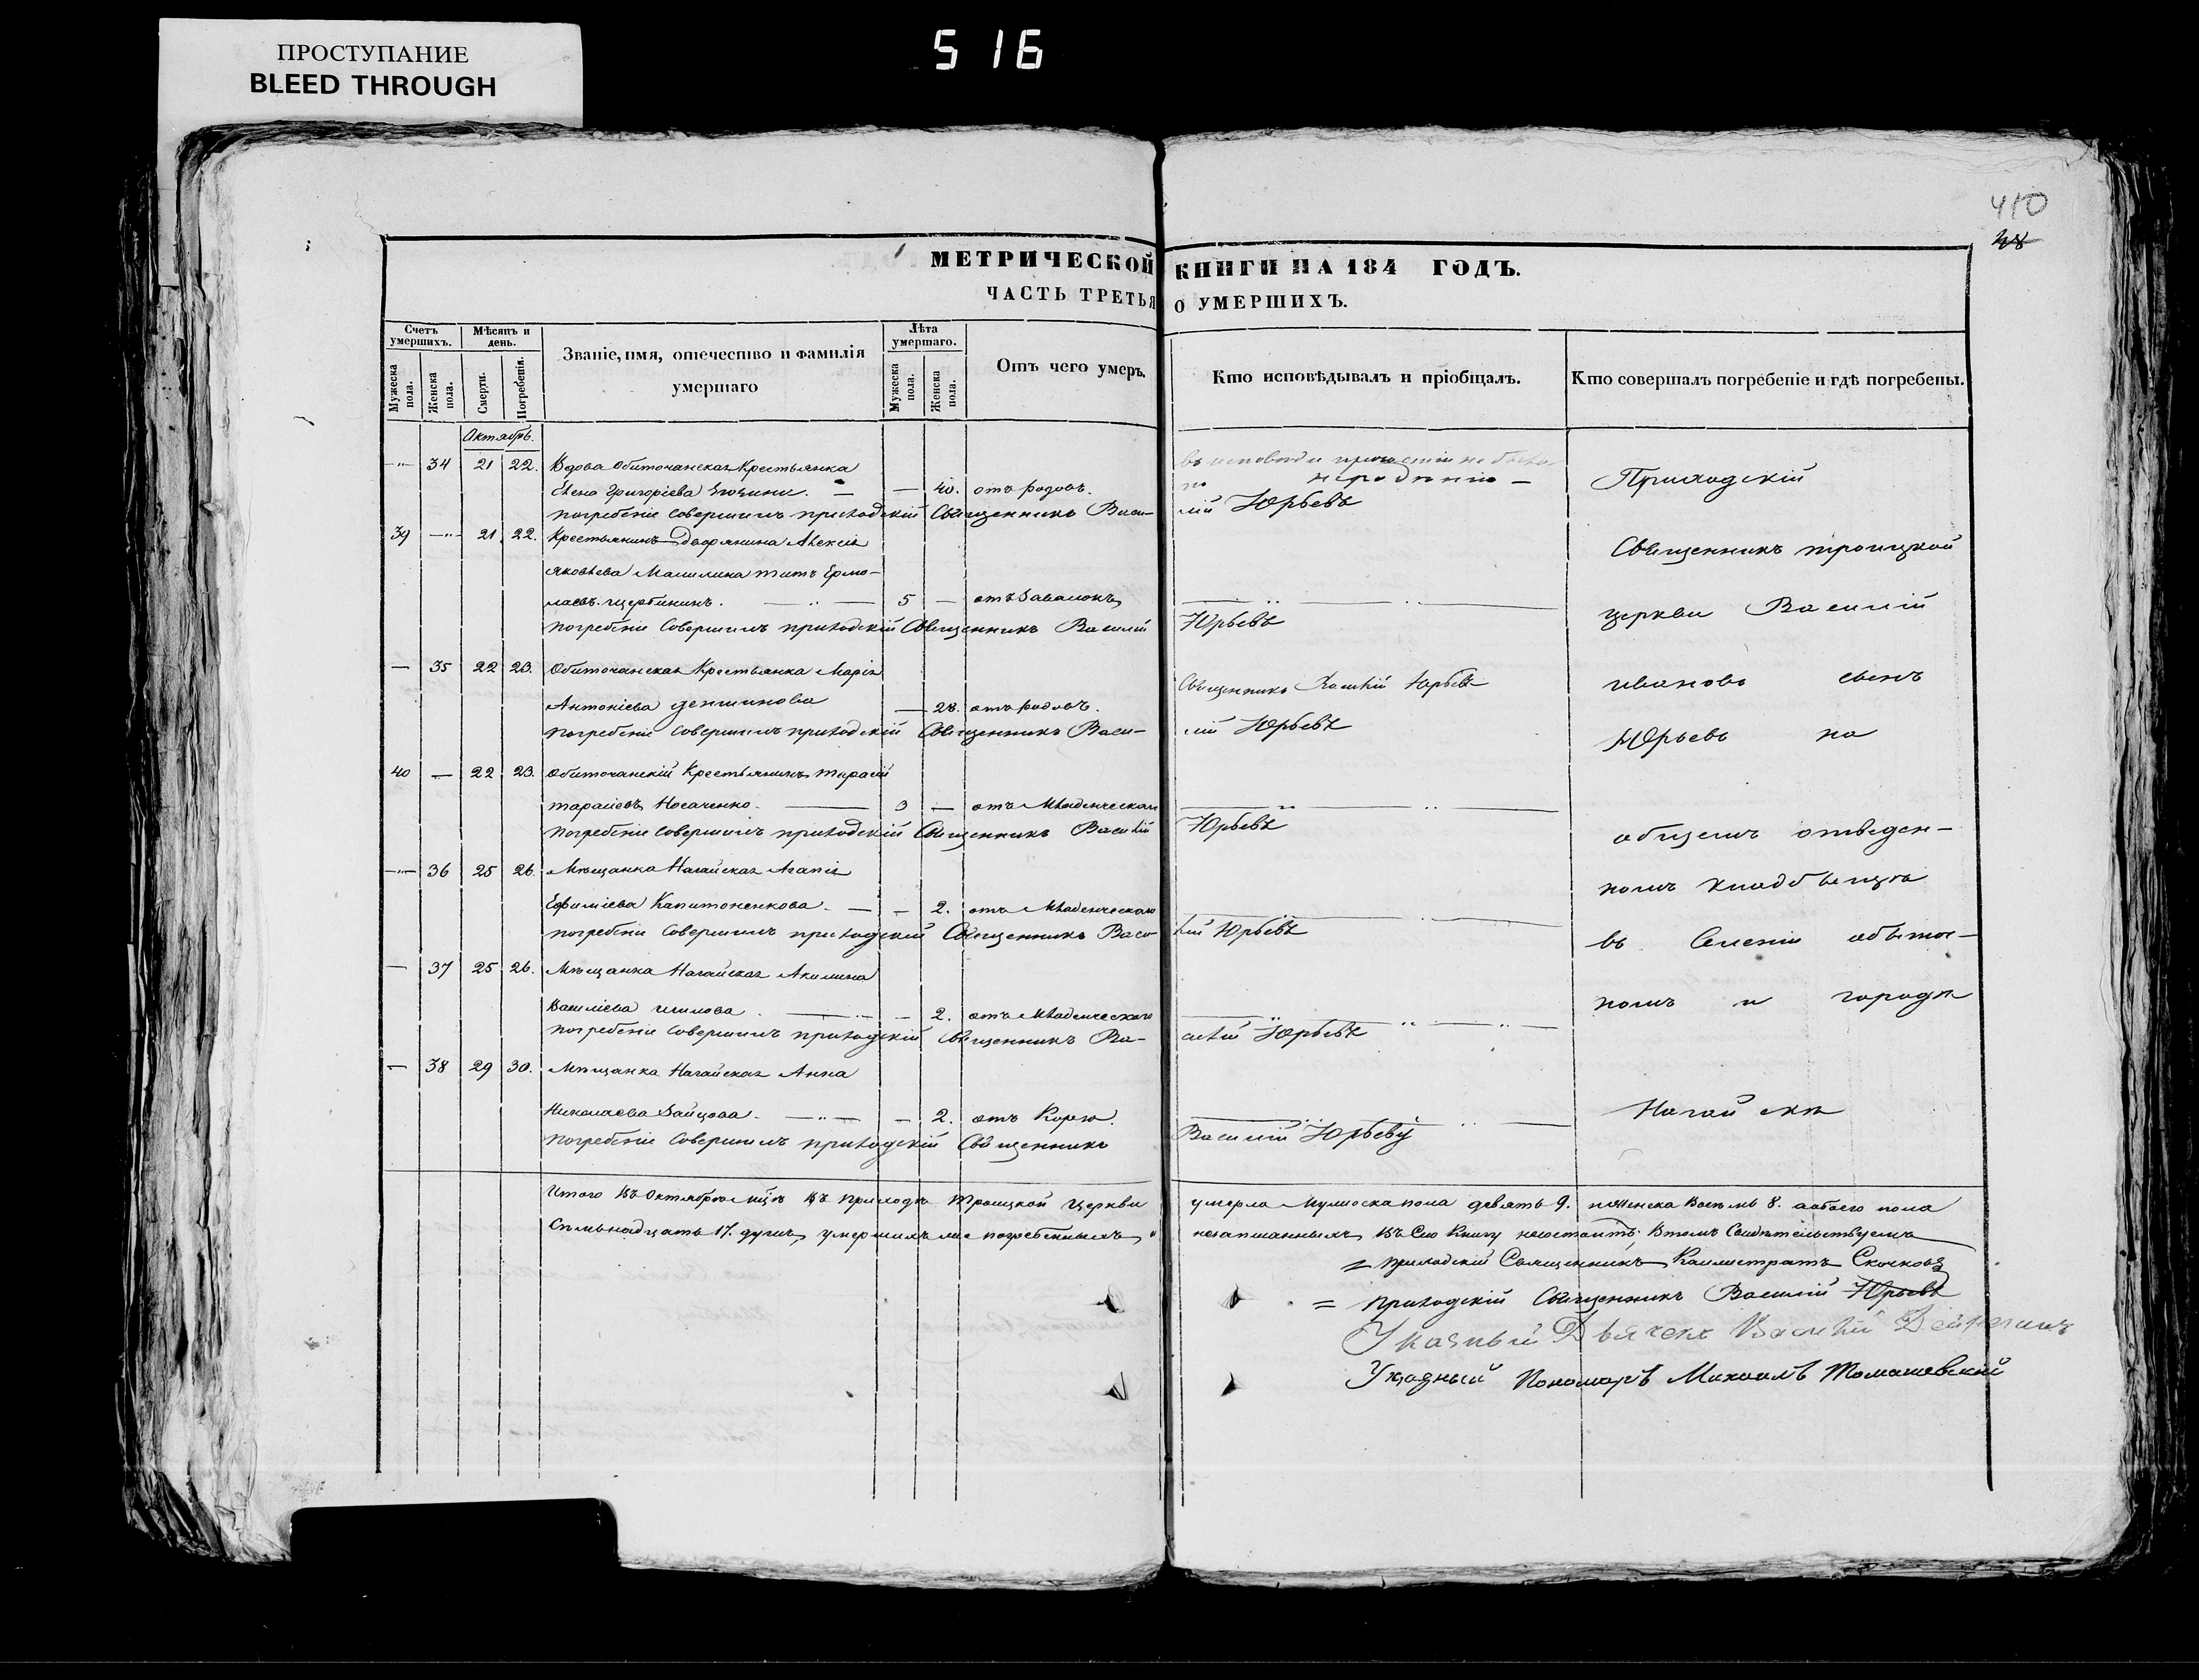 ПРОСТУПАНИЕ
BLEED THROUGH
516
410
МЕТРИЧЕСКОЙ КНИГИ НА 184 ГОДЪ.
ЧАСТЬ ТРЕТЬЯ О УМЕРШИХЪ.
Счетъ умершихъ.
Мужеска пола.
Женска пола.
Мѣсяцъ и день.
Смерти.
Погребенія.
Званіе, имя, отечество и фамилія умершаго
Лѣта умершаго.
Мужеска пола.
Женска пола.
Отъ чего умеръ.
Кто исповѣдывалъ и пріобщалъ.
Кто совершалъ погребеніе и гдѣ погребены.
Октябрь.
34 21 22. Вдова Обиточанская Крестьянка
Елена Григоріева 40. отъ родовъ.
погребеніе Совершилъ приходскій Священникъ Василій Юрьевъ
39 21 22. Крестьянинъ Дворянина Алексія
Яковлева Титъ Ермо-
лаевъ Щербининъ. 5 отъ Завалокъ
погребеніе Совершилъ приходскій Священникъ Василій Юрьевъ
35 22 23. Обиточанская Крестьянка Марія
Антоніева 28. отъ родовъ. Священникъ Василій Юрьевъ
погребеніе Совершилъ приходскій Священникъ Васи- лій Юрьевъ
40 22 23. Обиточанскій Крестьянинъ Тарасій
Тарасіевъ Носаченко. 3 отъ Младенческой
погребеніе Совершилъ приходскій Священникъ Василій Юрьевъ
36 25 26. Мѣщанка Нагайская Агапія
Ефиміева Капитоненкова. 2. отъ Младенческой
погребеніе Совершилъ приходскій Священникъ Васи- лій Юрьевъ
37 25 26. Мѣщанка Нагайская Акилина
Василіева 2. отъ Младенческой
погребеніе Совершилъ приходскій Священникъ Ва- силій Юрьевъ
38 29 30. Мѣщанка Нагайская Анна
Николаева Зайцова. 2. отъ Корю.
погребеніе Совершилъ приходскій Священникъ Василій Юрьевъ
Приходскій
Священникъ Троицкой
церкви Василій
Ивановъ сынъ
Юрьевъ на
общемъ отведен-
номъ кладбыщѣ
въ Селеніи обыточ-
номъ и городѣ
Нагайскѣ
Итого Въ Октябрѣ Мцѣ Въ Приходѣ Троицкой Церкви умерло Мужеска пола девять 9. женска Восемь 8. а обоего пола
Семьнадцать 17. душъ, умершихъ и не погребенныхъ, и незаписанныхъ Въ Сію Книгу неостаетъ, В томъ Свидѣтельствуемъ
Приходскій Священникъ Каллистратъ Скочковъ
Приходскій Священникъ Василій Юрьевъ
Указный Дьячекъ Василій
Указный Пономарь Михаилъ Томашевскій